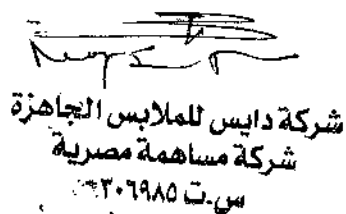 شركة دايس للملابس الجاهزة
شركة مساهمة مصرية
س.ت ٣٠٦٩٨٥